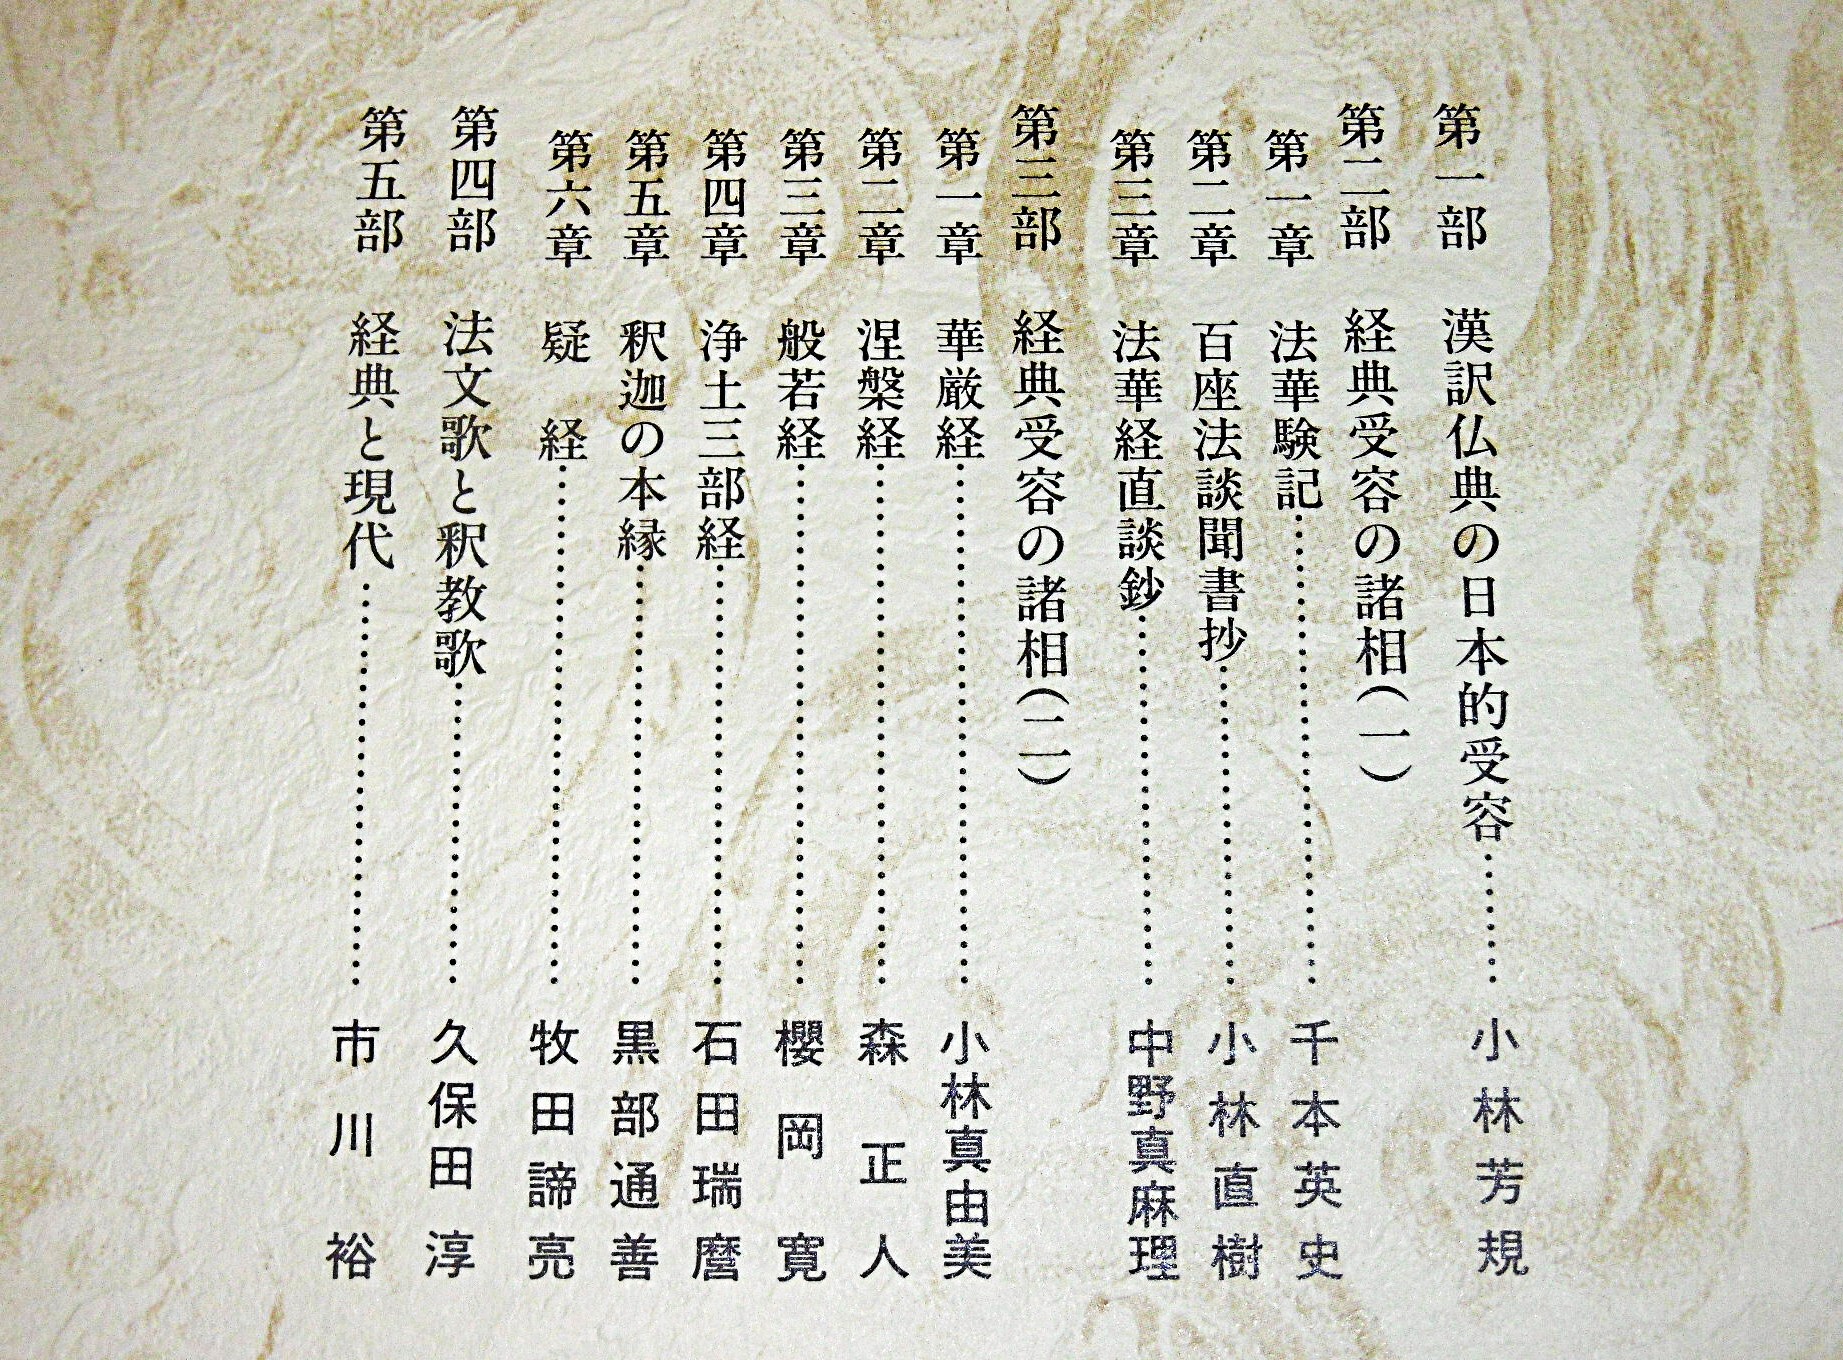 第一部　漢訳仏典の日本的受容…………小林芳規
第二部　経典受容の諸相(一)
第一章　法華験記…………千本英史
第二章　百座法談聞書抄…………小林直樹
第三章　法華経直談鈔…………中野真麻理
第三部　経典受容の諸相(二)
第一章　華厳経…………小林真由美
第二章　涅槃経…………森正人
第三章　般若経…………櫻岡寛
第四章　浄土三部経…………石田瑞麿
第五章　釈迦の本縁…………黒部通善
第六章　疑経…………牧田諦亮
第四部　法文歌と釈教歌…………久保田淳
第五部　経典と現代…………市川裕